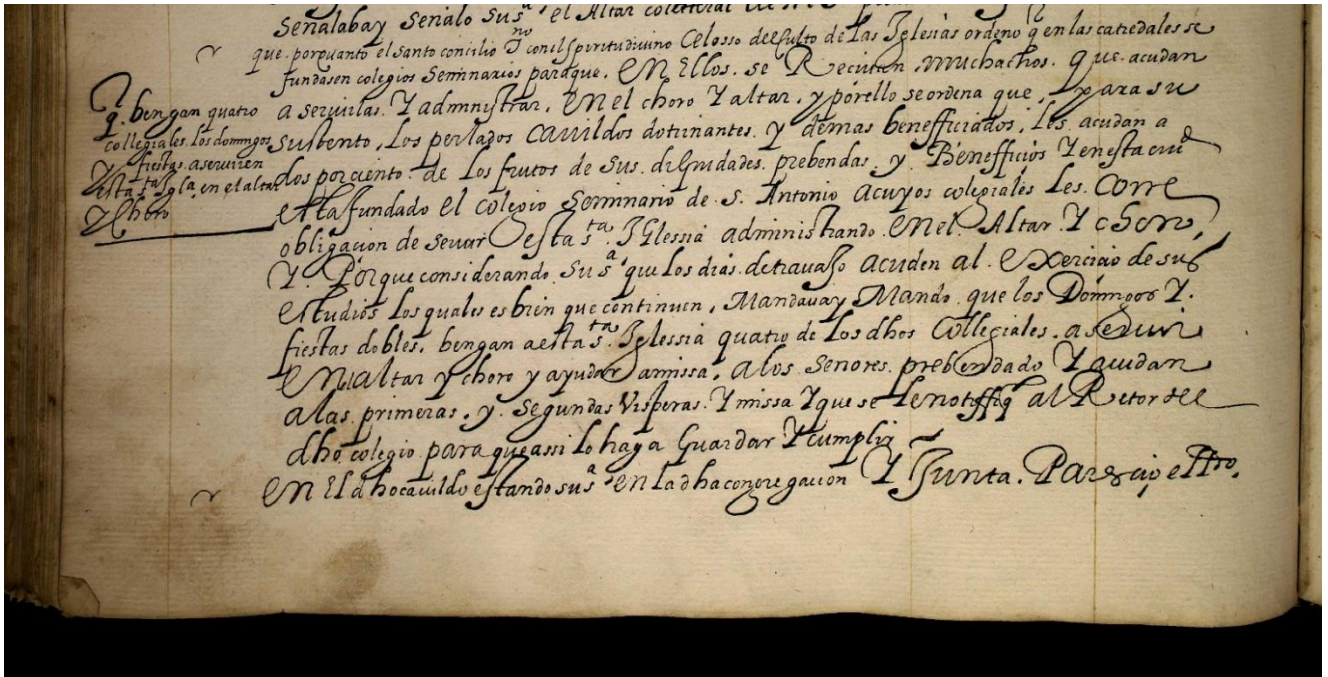 Señalaba y Señalo Su s.ª el Altar coletteral de
que. porquanto el santo concilio T.no con el spiritu divino Celosso del culto de las Iglesias ordeno q en las catredales se
fundasen colegios Seminarios paraque. EN Ellos. se Reciuan. muchachos. que. acudan
a seruirlas. Y admnistrar. EN el choro Y altar. y por ello se ordena que. para su
sustento, Los perlados Cauildos dotrinantes. y demas benefficiados. les. acudan a
dos por ciento. de los frutos de sus. dignidades. prebendas. y Benefficios Y en esta ciud
esta fundado el colegio Seminario de S. Antonio a cuyos colegiales les. Corre
obligacion de seruir esta s.ta Iglessia administrando. EN el. Altar. Y choro,
Y. Porque considerando. Su s.ª que los dias. de travaJo acuden al. Exercicio de sus
estudios los quales es bien que continuen, Mandaua y Mando. que los Domingos Y.
fiestas dobles. bengan a esta s.ta Iglessia quatro de los dhos Collegiales. a seruir
EN altar y choro y ayudar a missa. a los. Senores. prebendado Y acudan
a las. primeras. y. Segundas Visperas. Y missa Y que se le notiffiq al Retor del
dho. colegio para que assi lo haga Guardar Y cumplir
EN El dho cauildo estando su s.ª EN la dha congregacion Y Junta. Parecio el
q. bengan quatro
collegiales. los domingos
Y fiestas. a seruir en
esta s.ta Igla. en el altar
Y choro